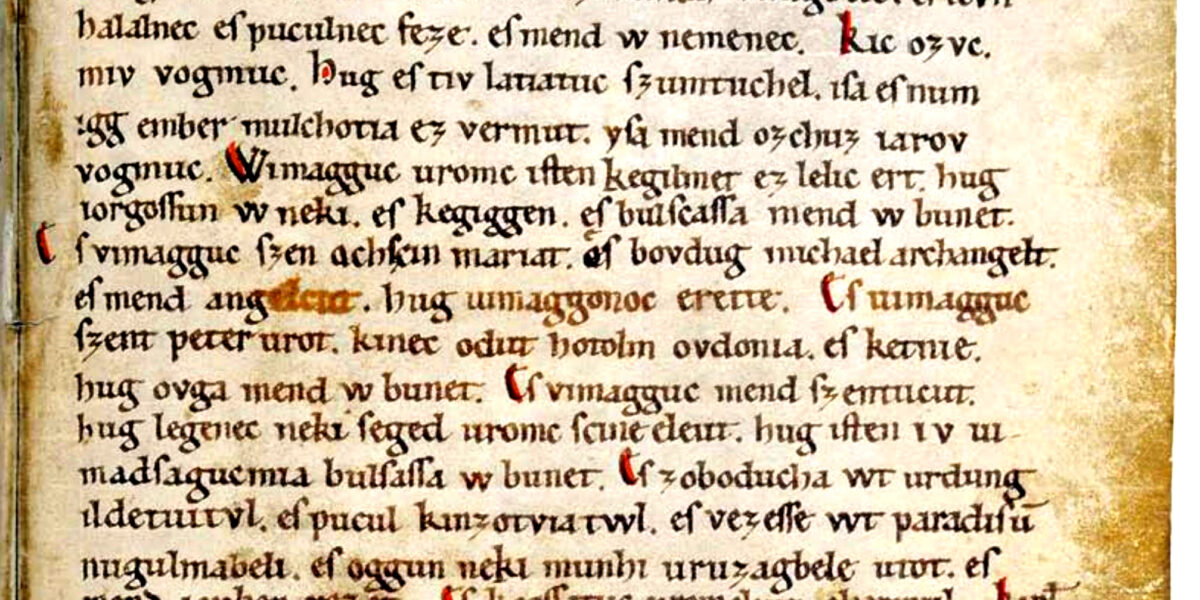 halalnec eſ puculnec feze. eſ mend w nemenec. Kic ozvc.
miv vogmuc. Hug eſ tiv latiatuc ſzumtuchel. iſa eſ num
igg ember mulchotia ez vermut. yſa mend ozchuz iarov
vogmuc. Wimagguc uromc iſten kegilmet ez lelic ert. hug
iorgoſſun w neki. eſ kegiggen. eſ bulſcaſſa mend w bunet.
Eſ vimagguc ſzen achſcin mariat. eſ bovdug michael archangelt.
eſ mend angelcut. hug uimaggonoc erette. Eſ uimagguc
ſzent peter urot. kinec odut hotolm ovdonia. eſ ketnie.
hug ovga mend w bunet. Eſ vimagguc mend ſzentucut.
hug legenec neki ſeged uromc ſcine eleut. hug iſten iv ui
madſagucmia bulſaſſa w bunet. Eſ zoboducha wt urdung
ildetuitvl. eſ pucul kinzotviatwl. eſ vezeſſe wt paradiſū
nugulmabeli. eſ oggun neki munhi uruzagbele utot. eſ